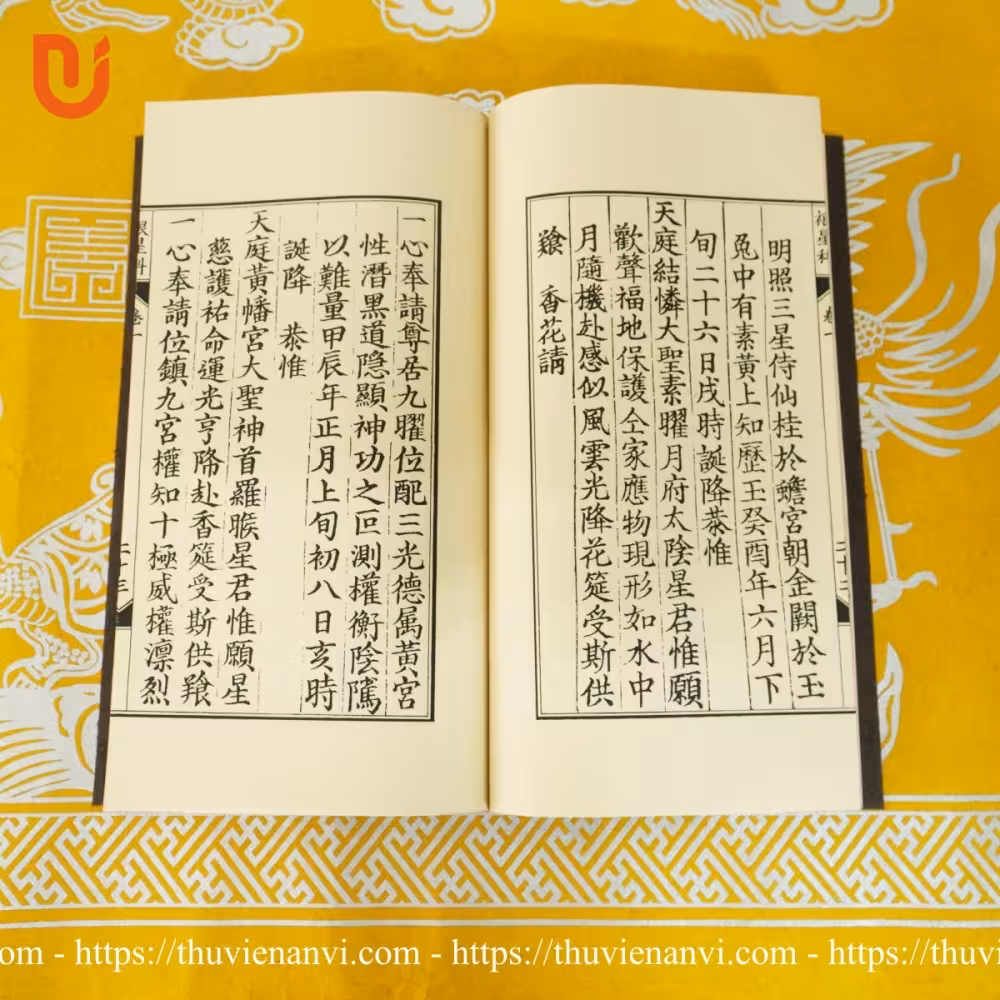 明照三星侍仙桂於蟾宮朝金闕於玉
兔中有素黃上知歷王癸酉年六月下
旬二十六日戌時誕降恭惟
天庭結憐大聖素曜月府太陰星君惟願
歡聲福地保護仝家應物現形如水中
月隨機赴感似風雲光降花筵受斯供
飱 香花請
卷一
二十二
一心奉請尊居九曜位配三光德属黃宮
性潛黑道隐顯神功之叵測權衡陰隲
以難量甲辰年正月上旬初八日亥時
誕降 恭惟
天庭黃幡宮大聖神首羅睺星君惟願星
慈護祐命運光亨降赴香筵受斯供飱
一心奉請位鎮九宮權知十極威權凛烈
星科
卷一
二十三
https://thuvienanvi.com - https://thuvienanvi.com - https://thuvi